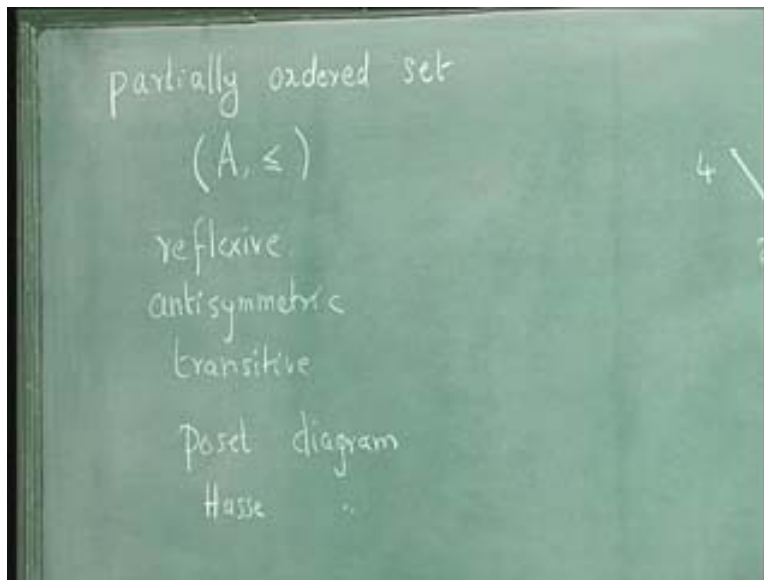 partially ordered set
(A, ≤)
reflexive
antisymmetric
transitive
poset diagram
Hasse "
4